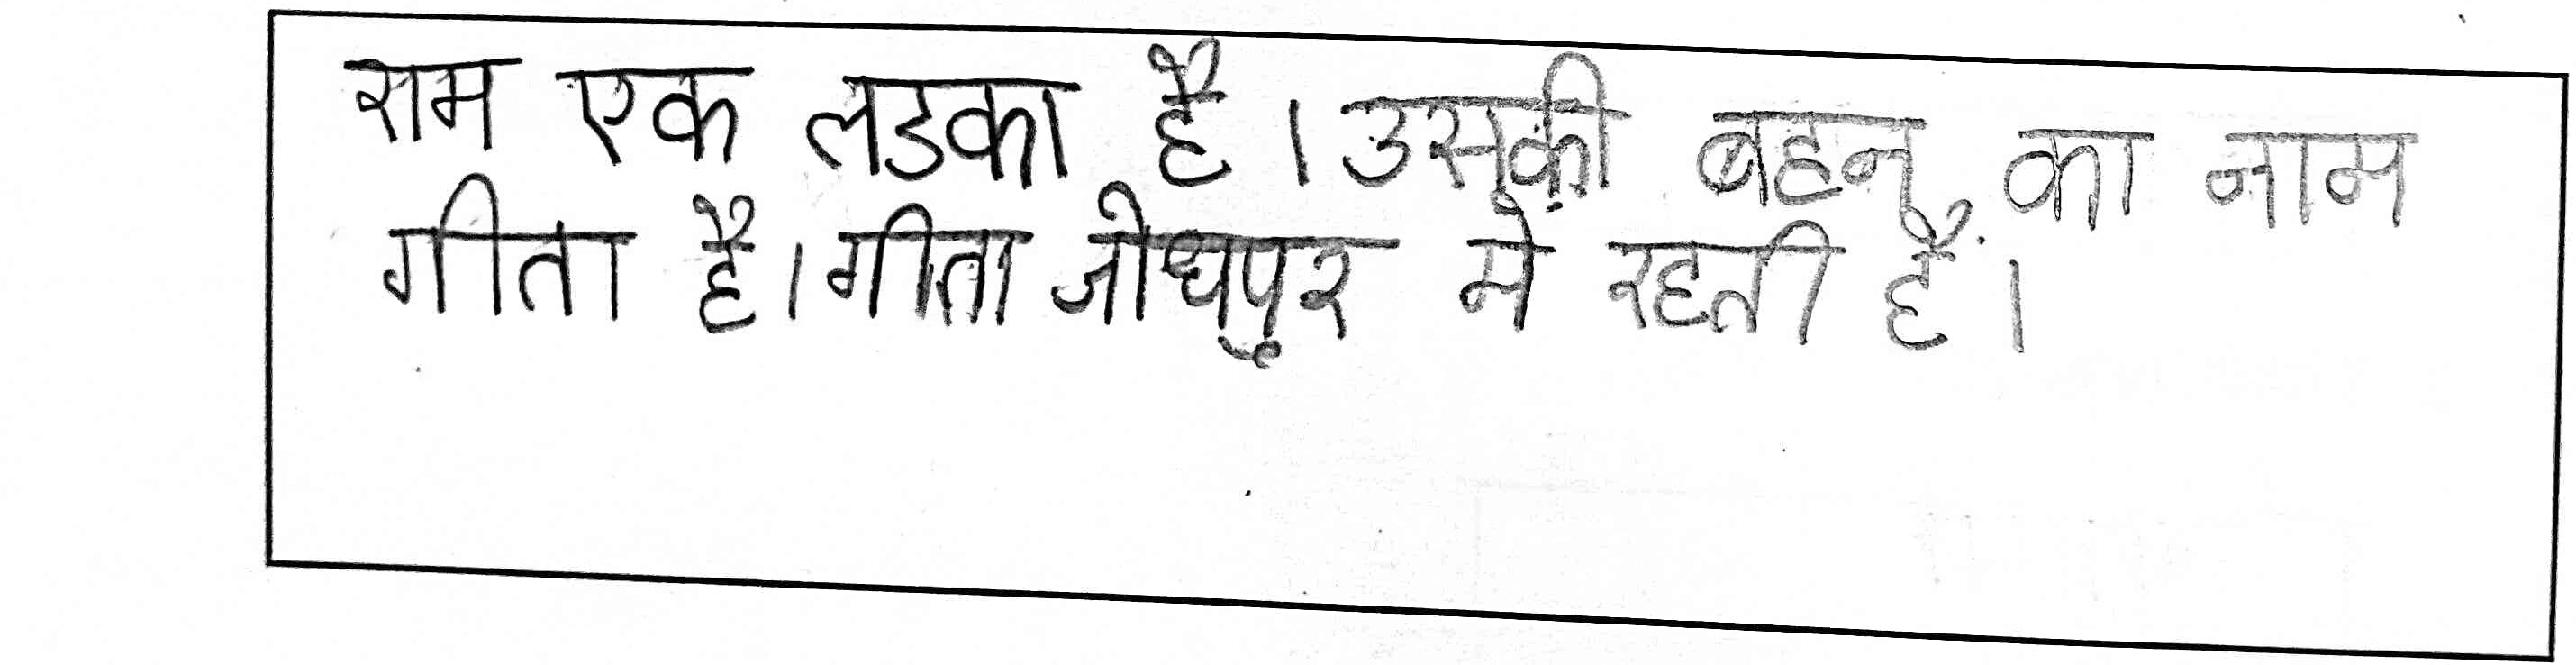 राम एक लडका है । उसकी बहन का नाम
गीता है । गीता जोधपुर मे रहती है ।